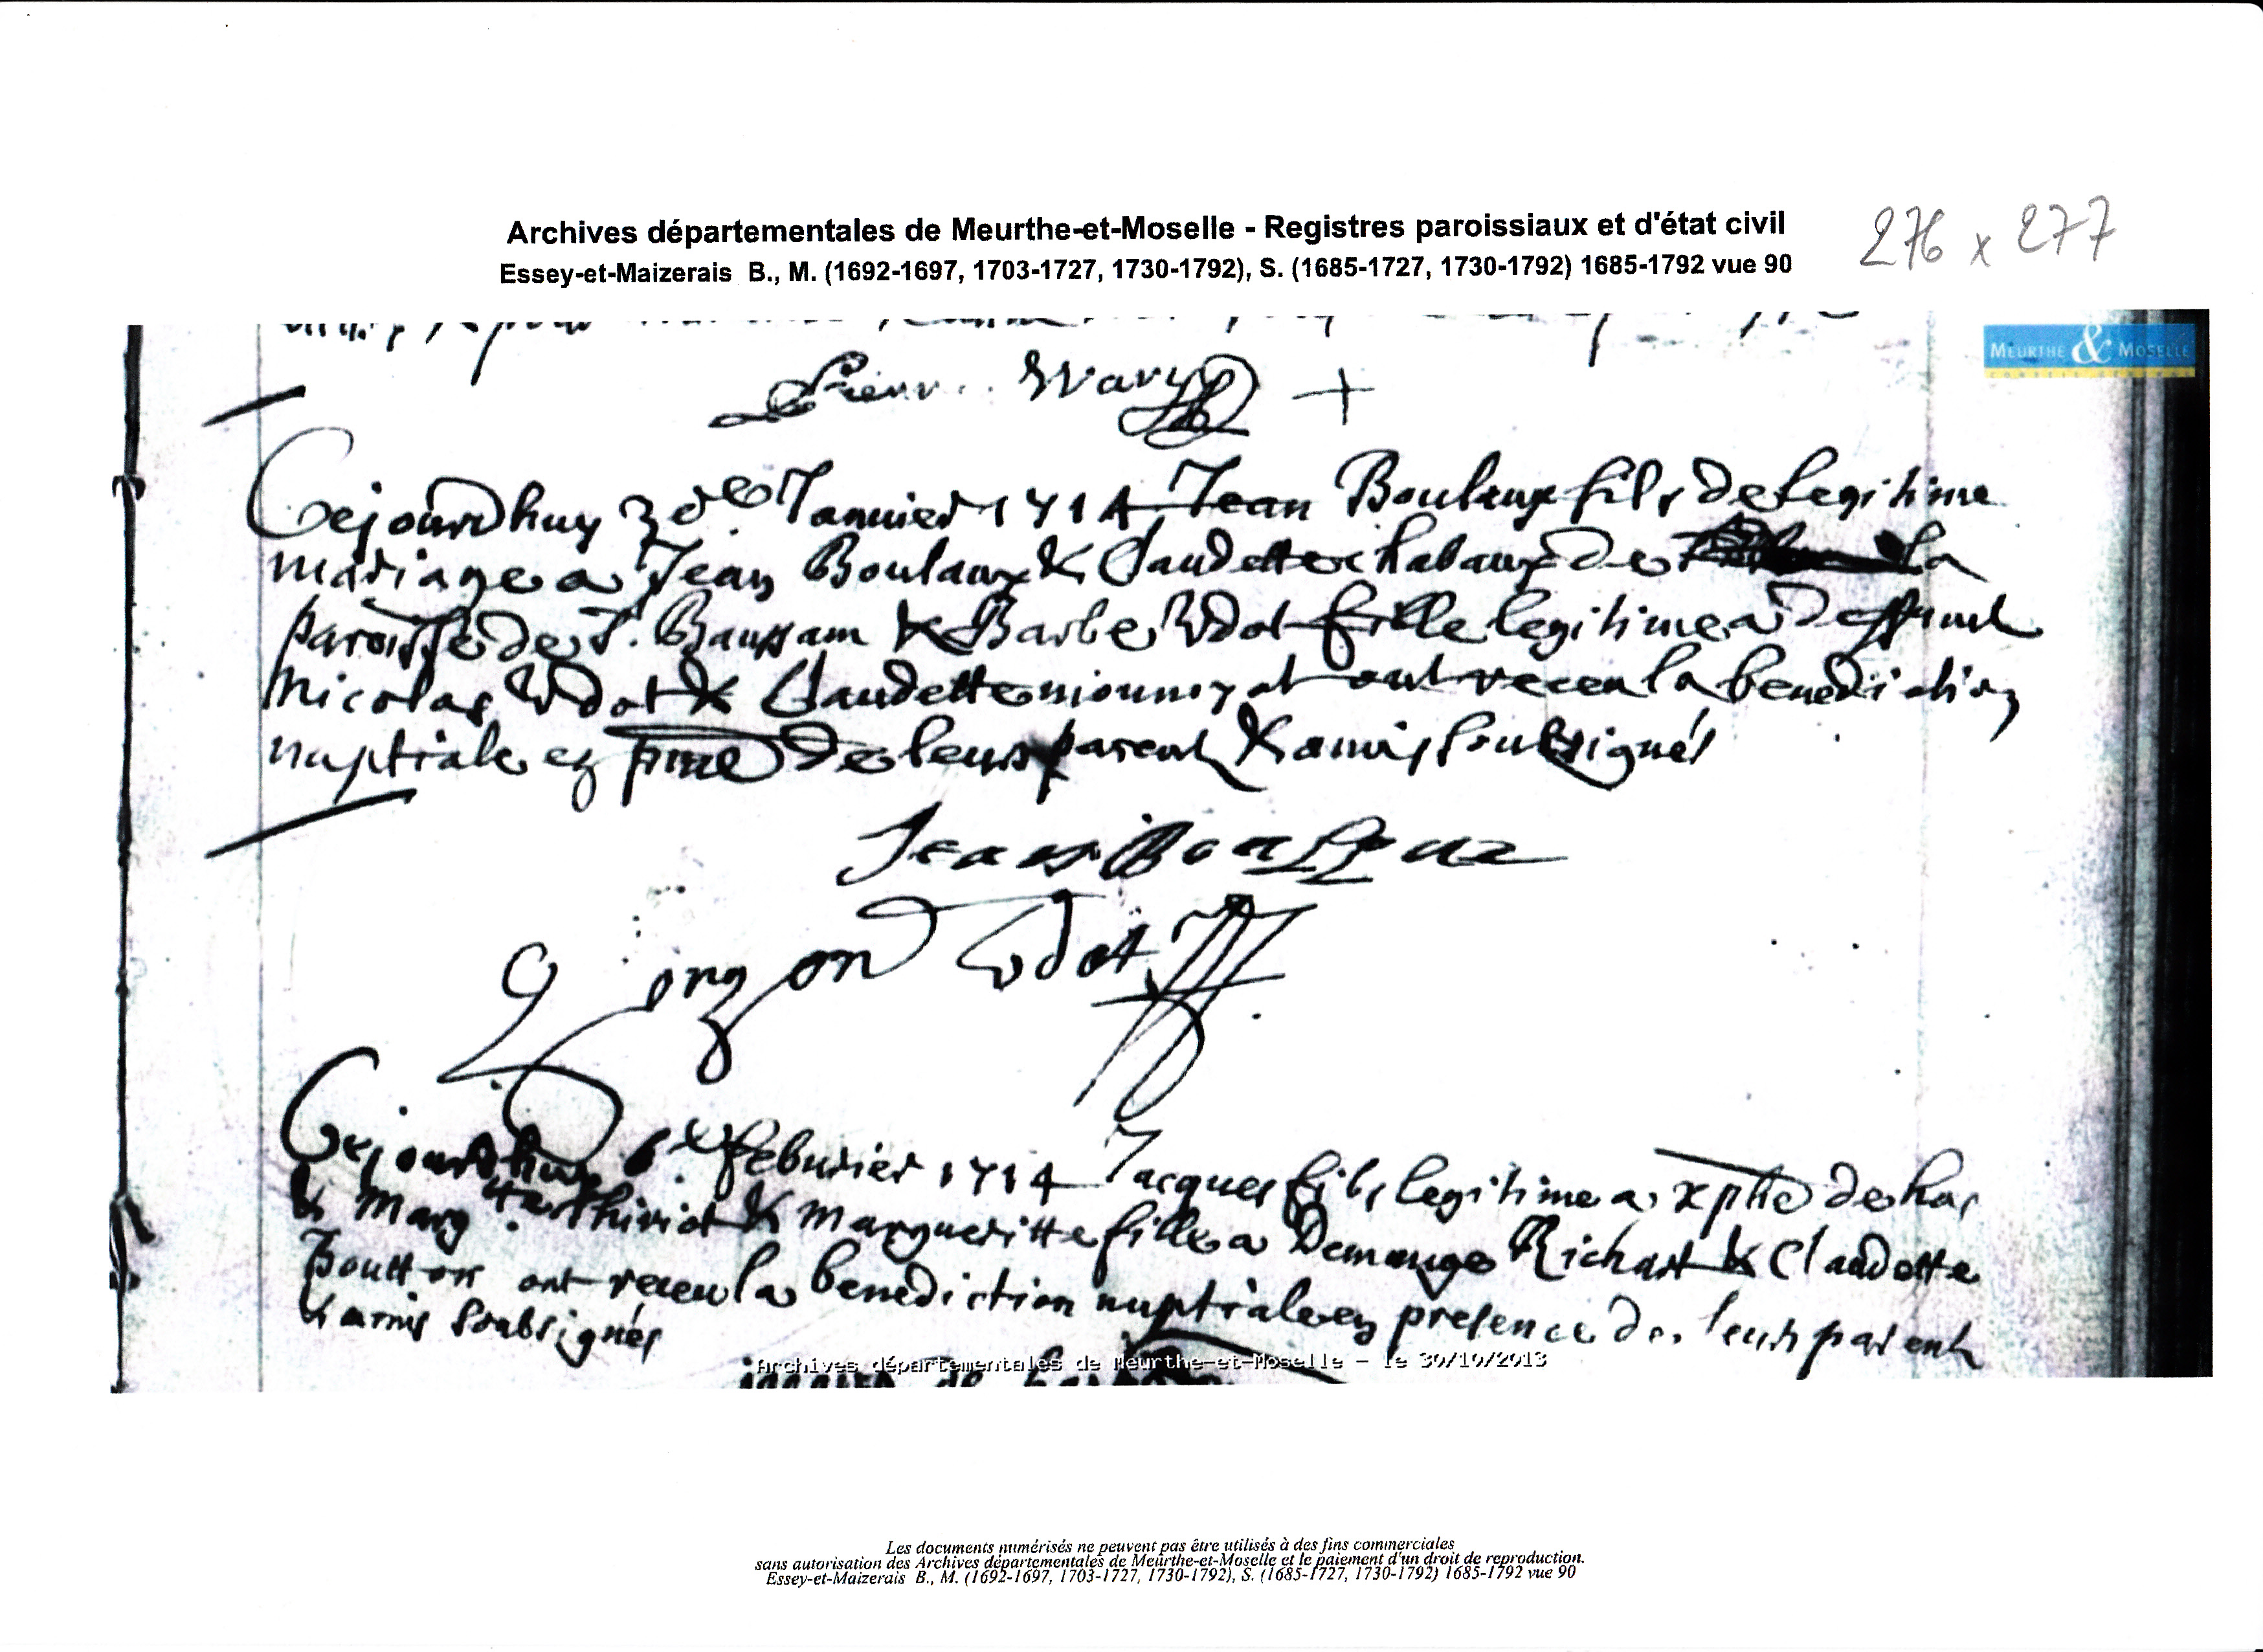 Archives départementales de Meurthe-et-Moselle - Registres paroissiaux et d'état civil
Essey-et-Maizerais B., M. (1692-1697, 1703-1727, 1730-1792), S. (1685-1727, 1730-1792) 1685-1792 vue 90
276 x 277
MEURTHE & MOSELLE
Wary +
Cejourdhuy 3e Januier 1714 Jean Boulaux fils de legitime
mariage a Jean Boulaux & Claudette chabaux de la
paroisse de St. Baussam & Barbe Wdot fille legitime a deffunt
Nicolas Wdot & Claudette ont receu la benediction
nuptiale en pnce de leurs parents & amis soubsignés
Jean Boulaux
Gorgon Wdot
Cejourdhuy 6e feburier 1714 Jacques fils legitime a xphe de has
& Marg.tte Thiriot & Margueritte fille a Demange Richart & Claudotte
Boutton ont receu la benediction nuptiale en presence de leurs parents
& amis soubsignés
Archives départementales de Meurthe-et-Moselle - le 30/10/2013
Les documents numérisés ne peuvent pas être utilisés à des fins commerciales
sans autorisation des Archives départementales de Meurthe-et-Moselle et le paiement d'un droit de reproduction.
Essey-et-Maizerais B., M. (1692-1697, 1703-1727, 1730-1792), S. (1685-1727, 1730-1792) 1685-1792 vue 90